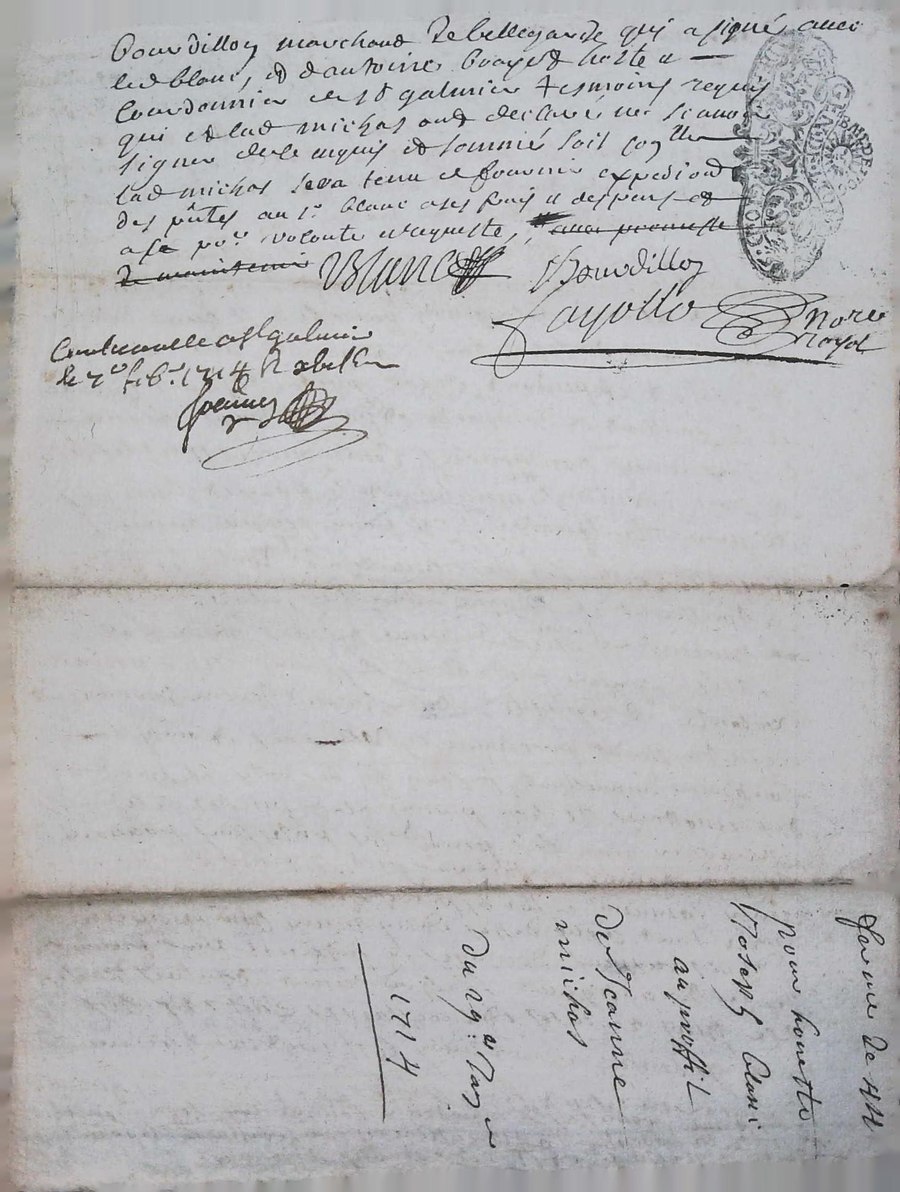 Bourdillon marchand de bellegarde qui a signé avec
led blanc, et d'antoine boayet hoste et
Courdonnier de st galmier tesmoins requis
qui et lad michas ont declaré ne scavoir
signer de ce enquis et sommé soit coller
lad michas sera tenu de fournir expedion
des pntes au sr blanc a ses frais et despens et
a sa pre volonté et requeste, avec promesse
de maintenir
Blanc
Bourdillon
Fayolle
nore
royal
Controlle a st galmier
le 7e feb. 1714 R
GENERALITE
ferme de 44
pour honette
Joseph blanc
au proffit
de Jeanne
michas
du 29e Janv
1714